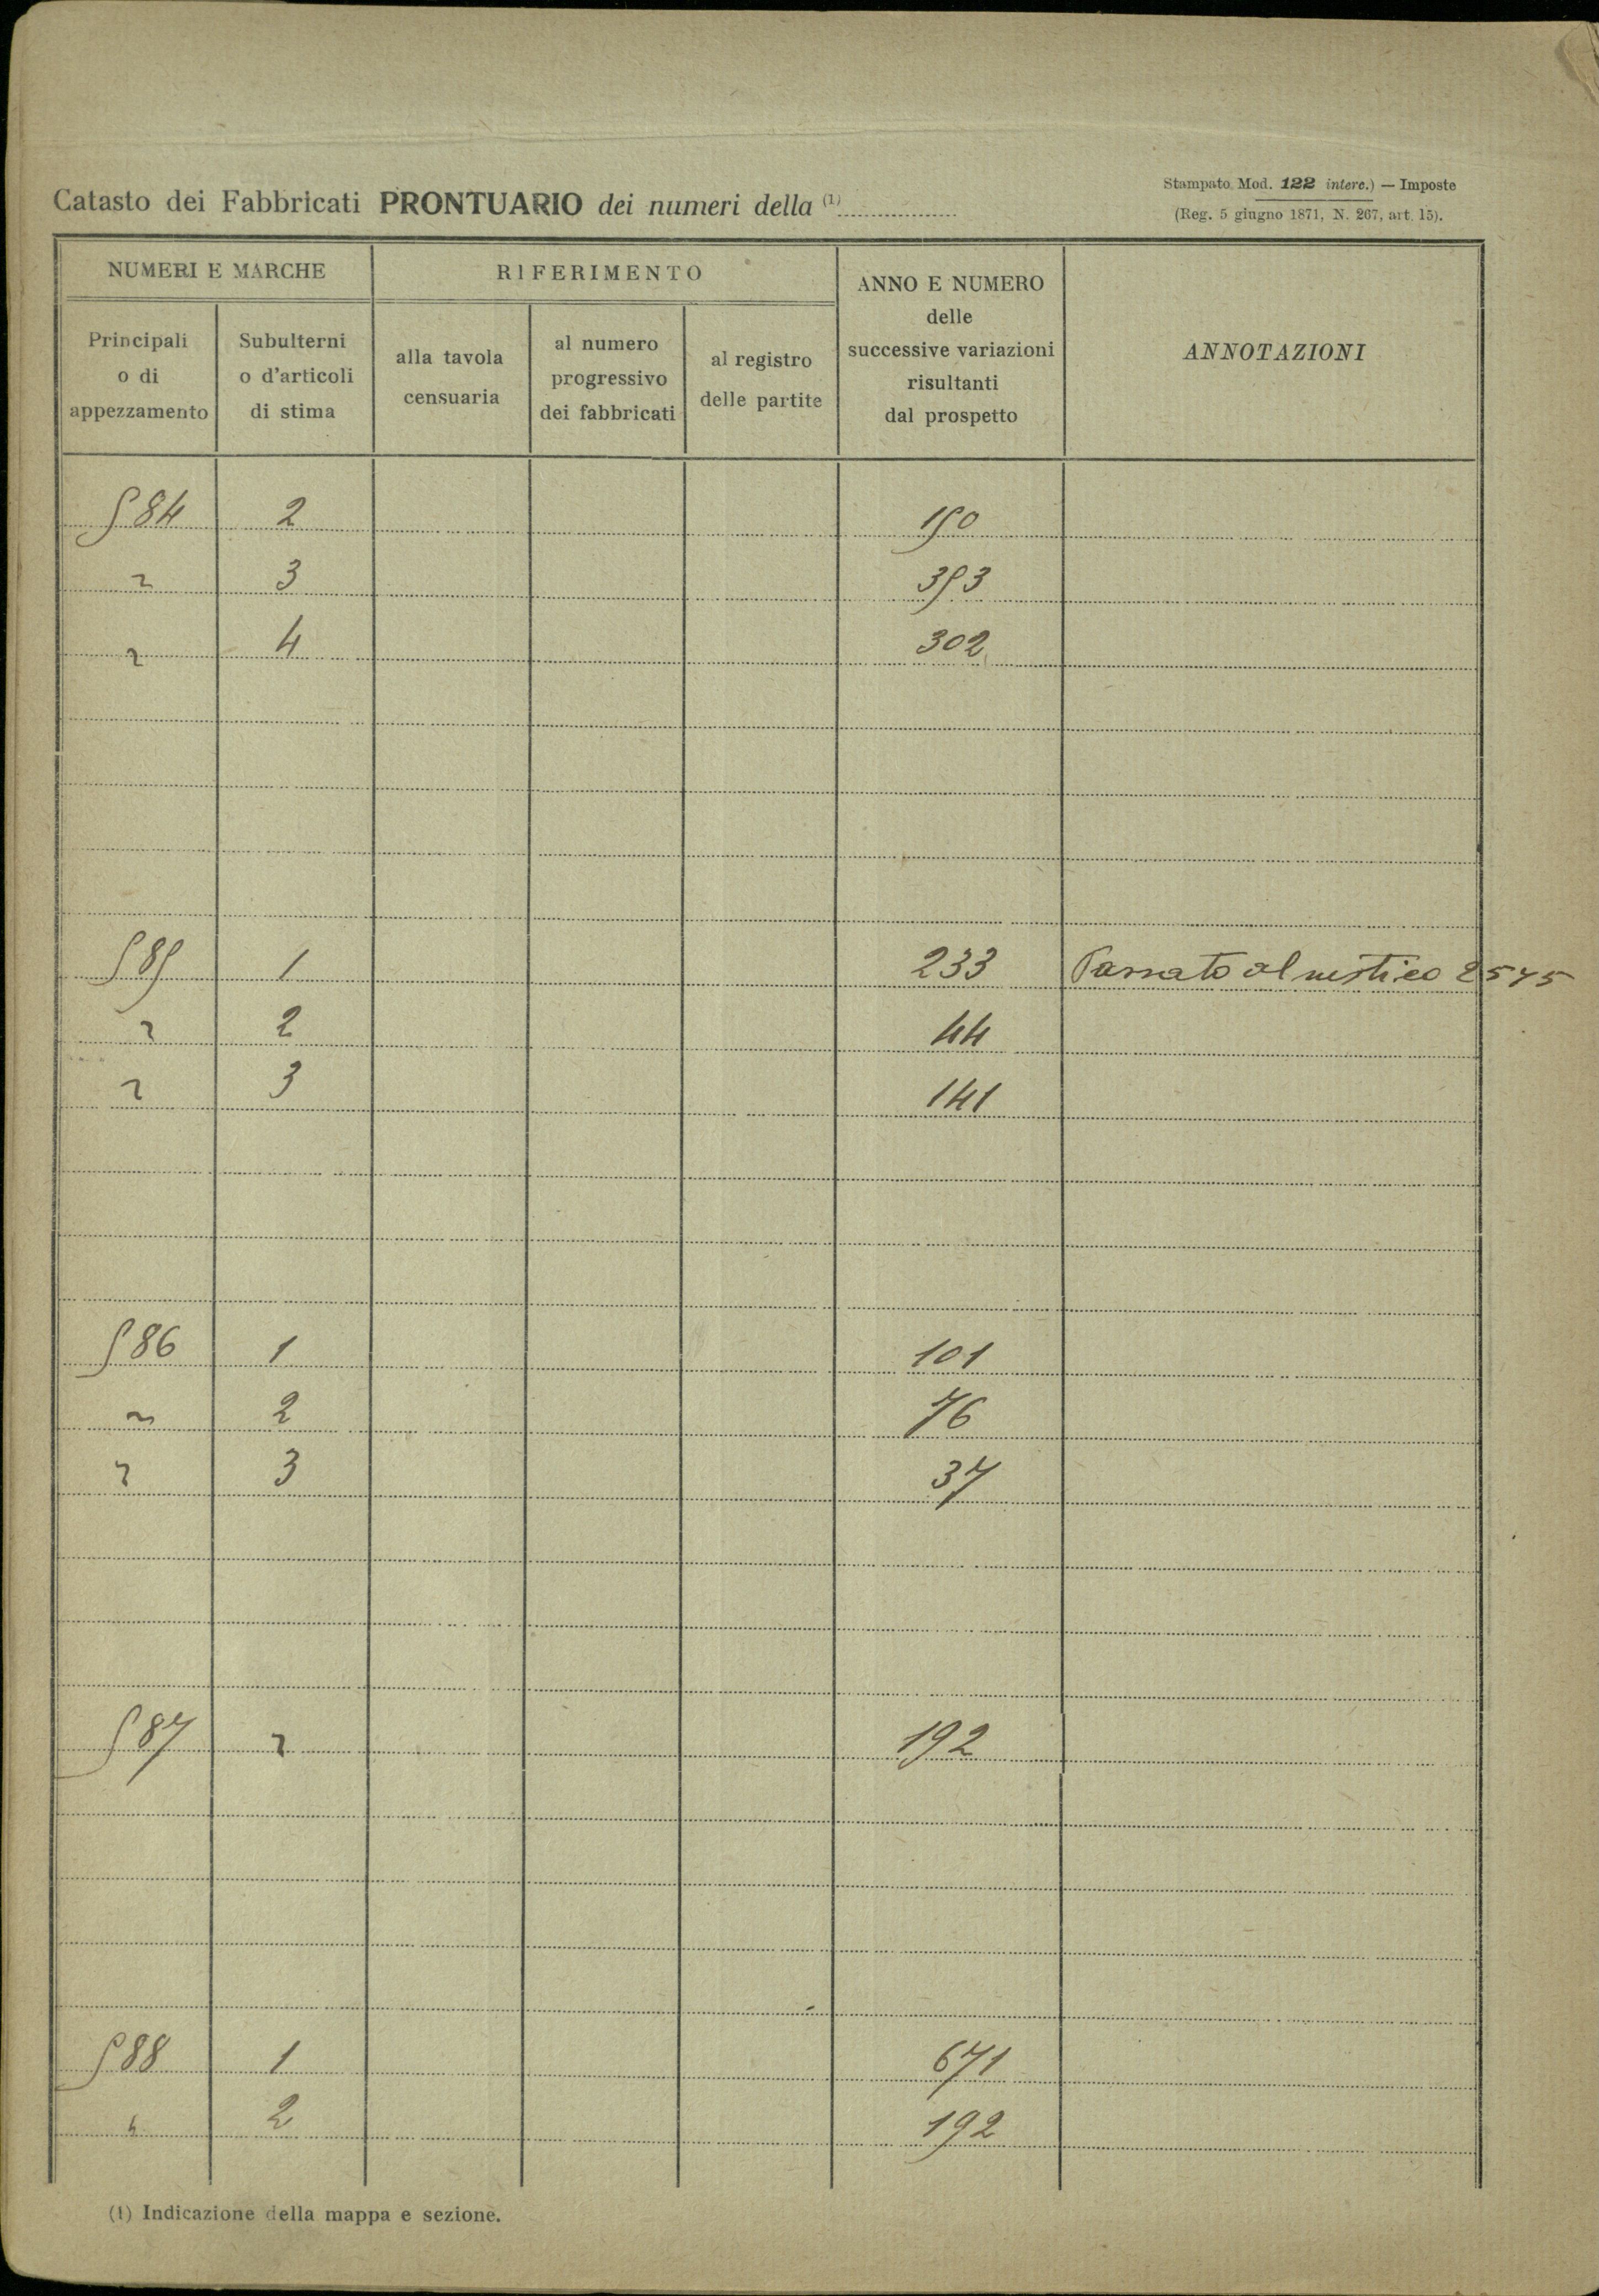 Catasto dei Fabbricati PRONTUARIO dei numeri della (1)
Stampato Mod. 122 interc.) — Imposte
(Reg. 5 giugno 1871, N. 267, art. 15).
NUMERI E MARCHE
RIFERIMENTO
ANNO E NUMERO
delle
successive variazioni
risultanti
dal prospetto
ANNOTAZIONI
Principali
o di
appezzamento
Subulterni
o d'articoli
di stima
alla tavola
censuaria
al numero
progressivo
dei fabbricati
al registro
delle partite
584 2 150
" 3 353
" 4 302
585 1 233 Passato al rustico 2575
" 2 44
" 3 141
586 1 101
" 2 76
" 3 37
587 " 192
588 1 671
" 2 192
(1) Indicazione della mappa e sezione.